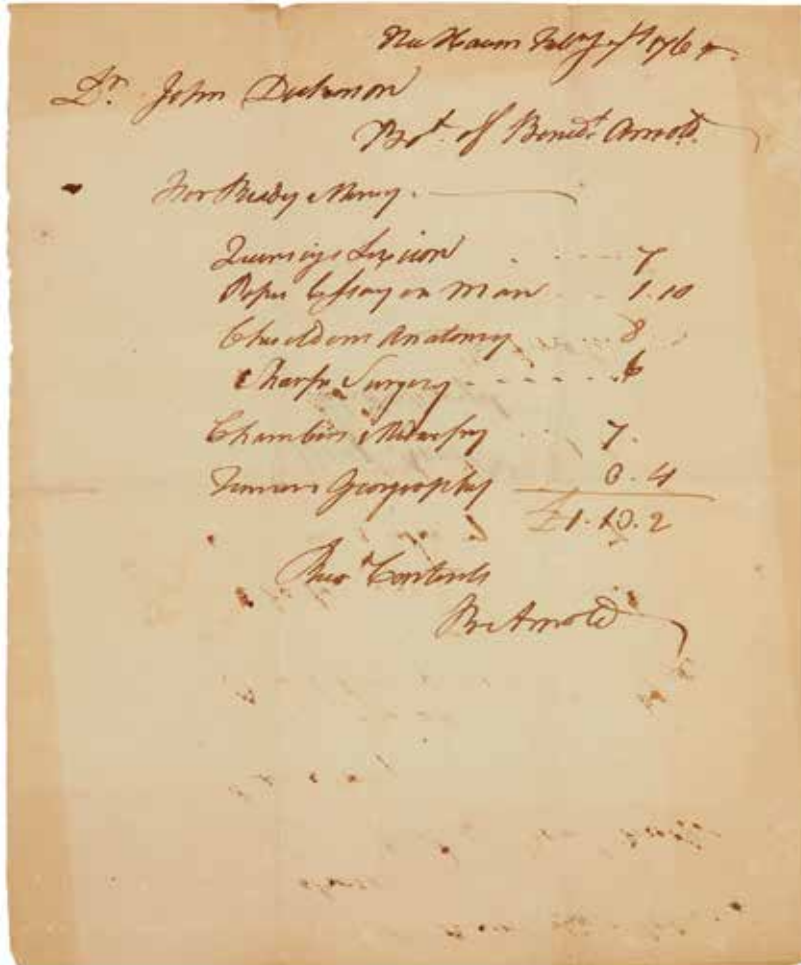 New Haven Feby 7th 1764
Dr. John Dickinson
Bot. of Benedt. Arnold
For Ready Money.
Quinseys Lexicon 7
Popes Essay on Man 1.10
Cheseldens Anatomy 8
Sharps Surgery 6
Midwifry 7.
Geography 0.4
£1.10.2
Contents
Bn Arnold